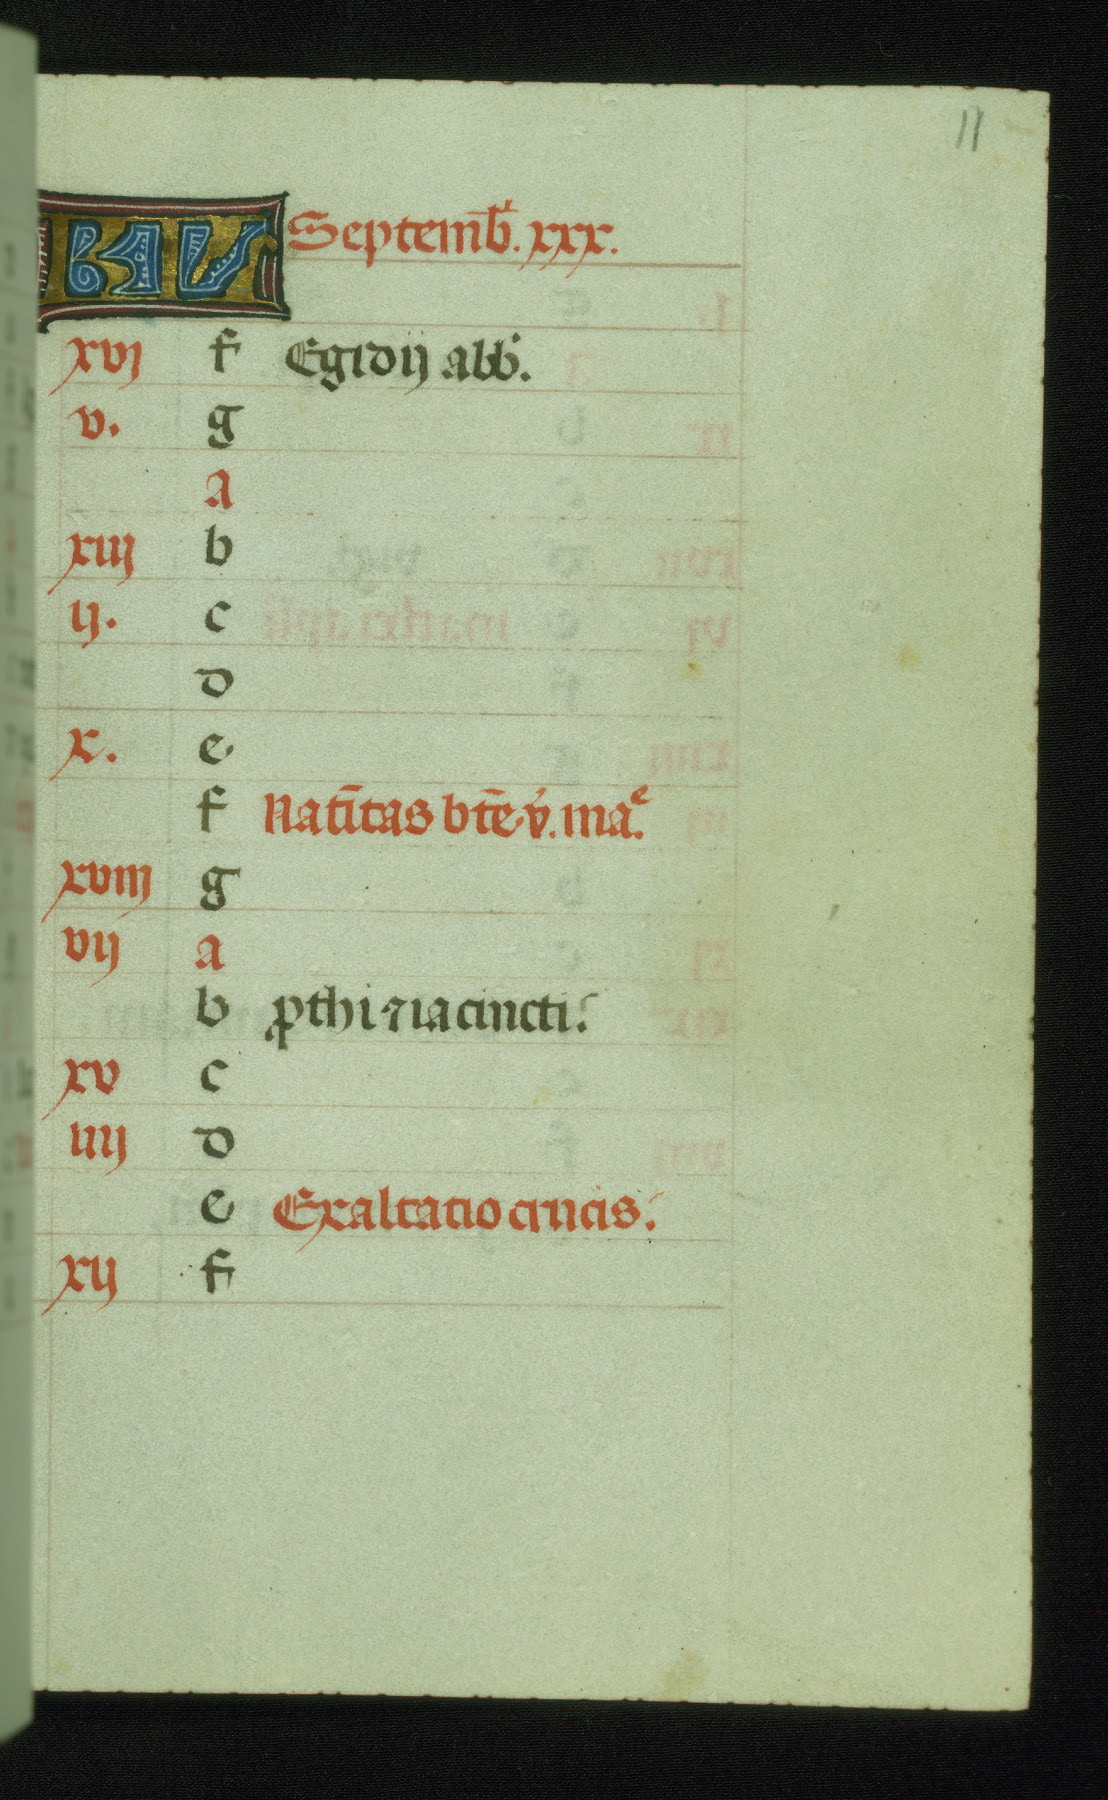 11
KL Septemb̃. xxx.
xvj f Egidij abb̃.
v. g
a
xiij b
ij. c
d
x. e
f Natĩtas bt̃e v̾. maᵉ.
xviij g
vij a
b ꝓthi ⁊ iacincti.
xv c
iiij d
e Exaltatio crucis.
xij f